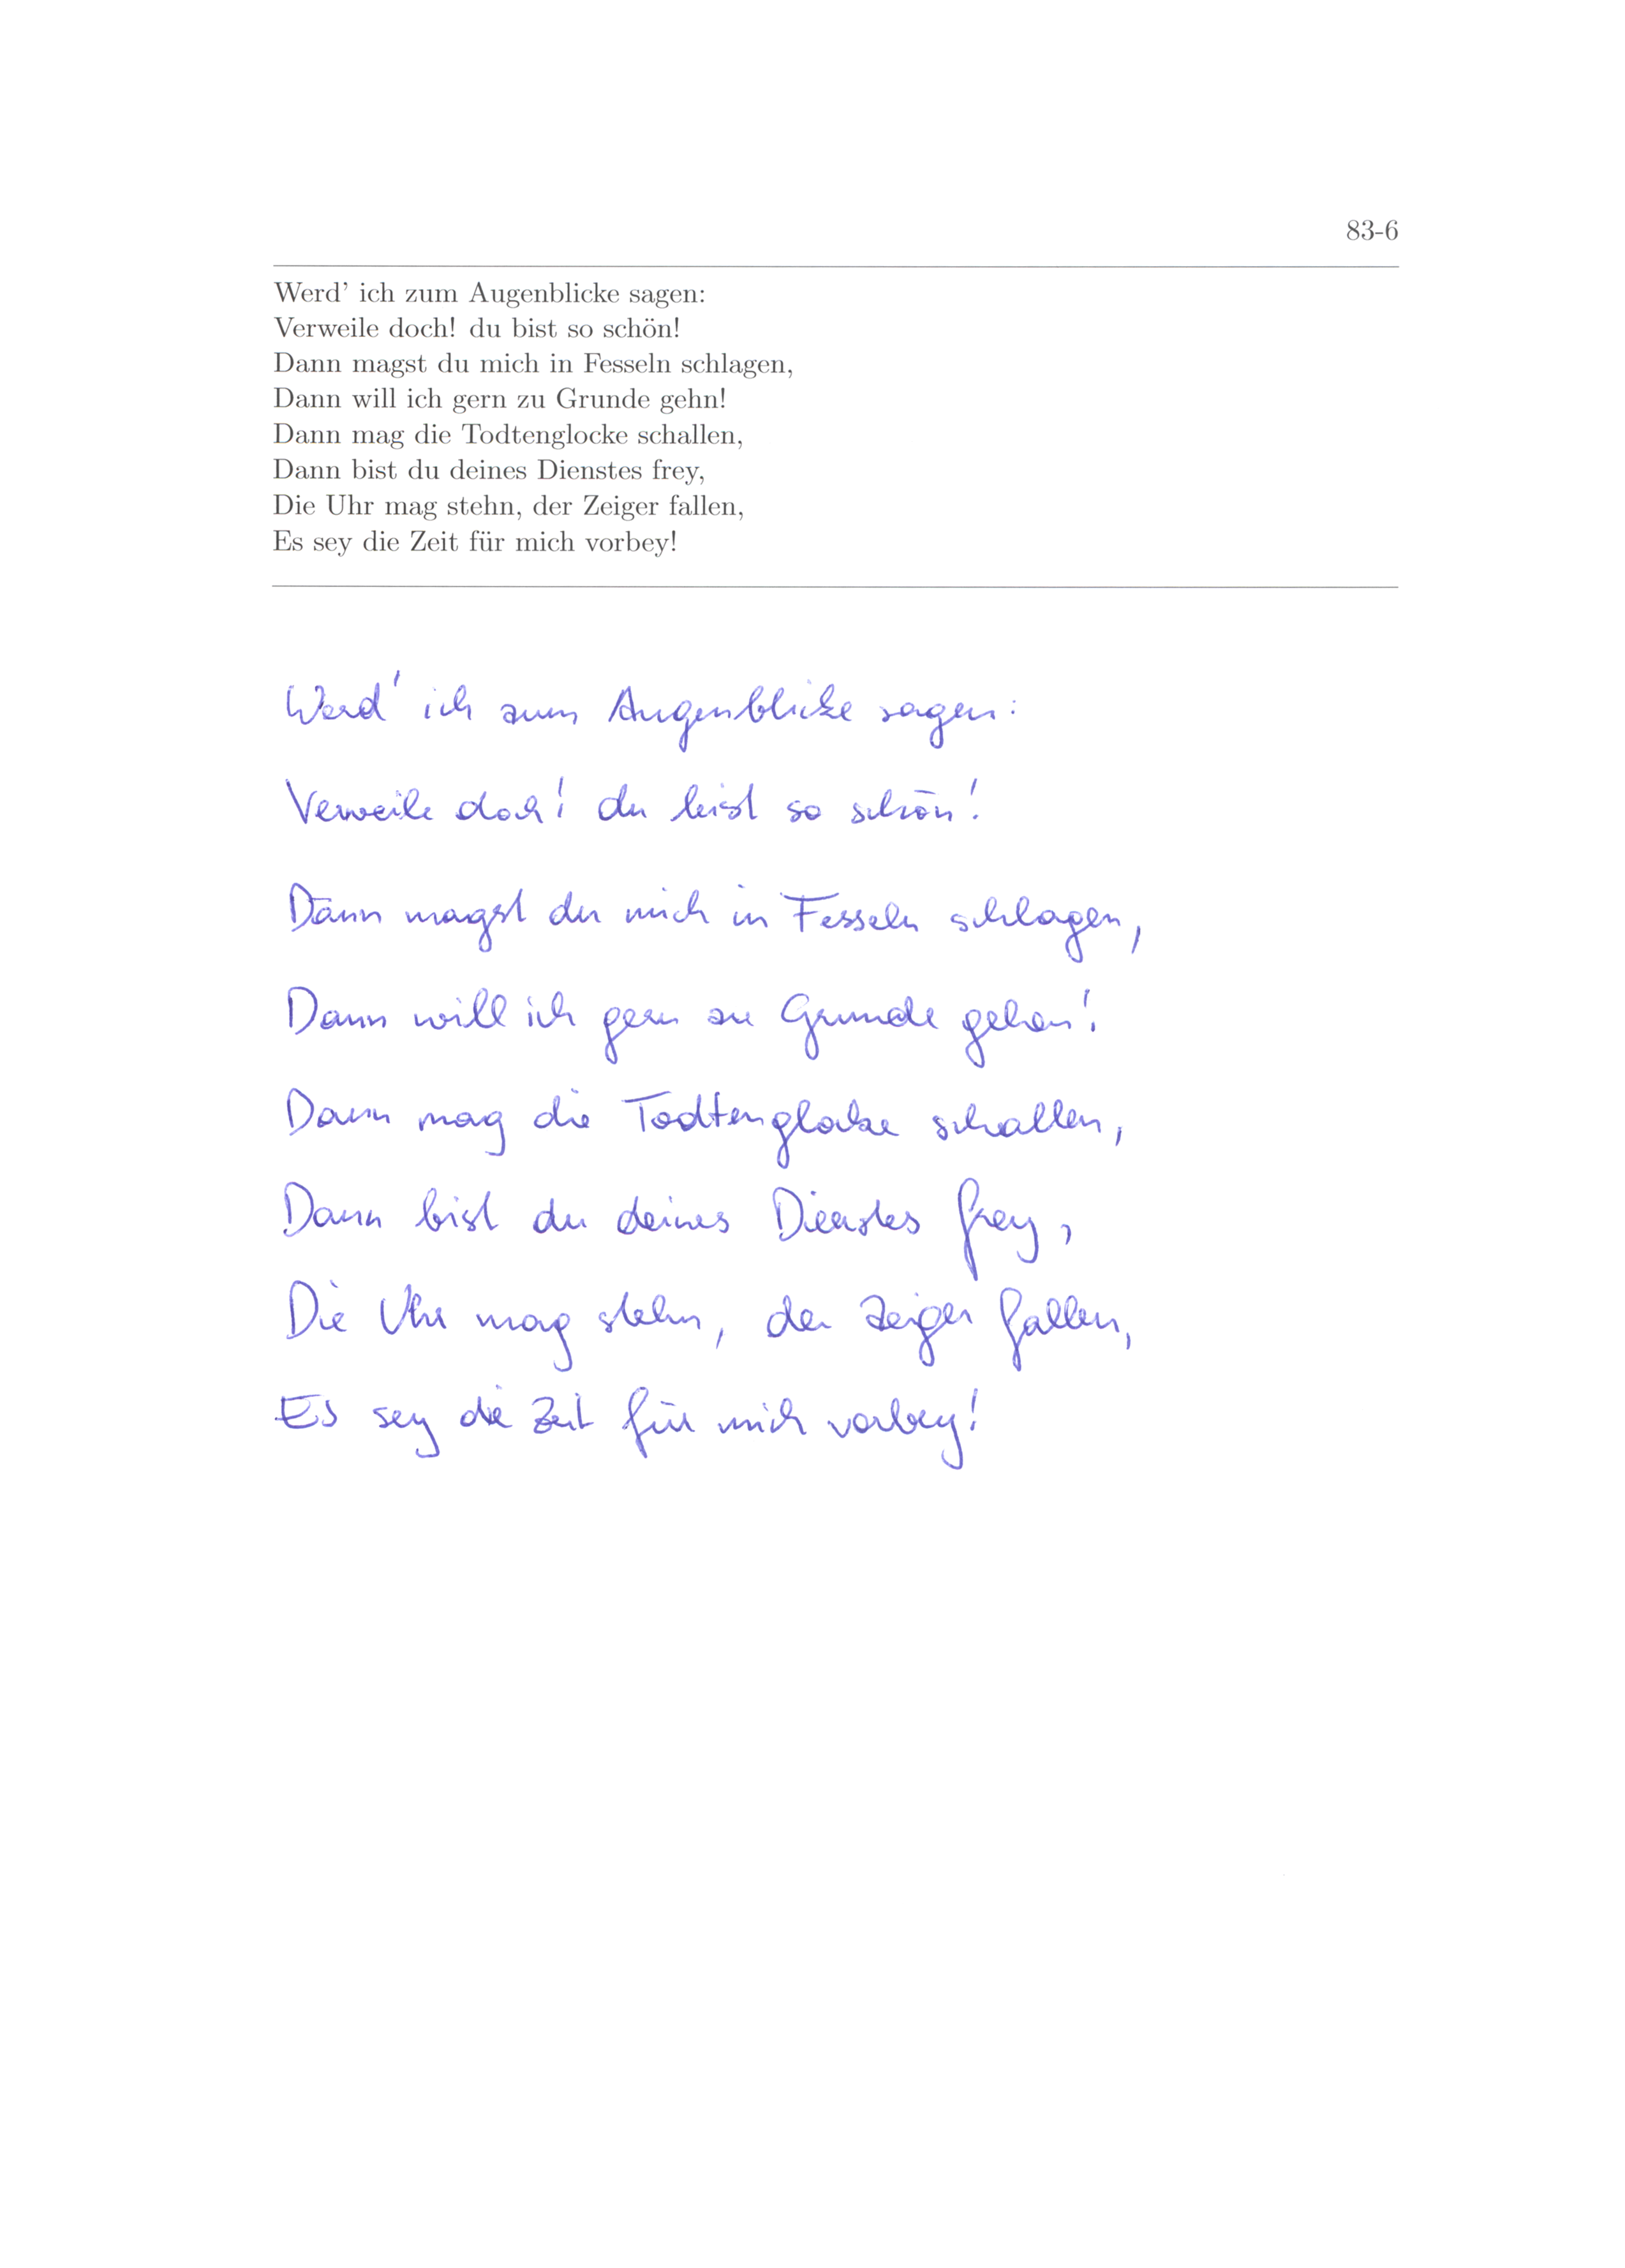 83-6
Werd' ich zum Augenblicke sagen:
Verweile doch! du bist so schön!
Dann magst du mich in Fesseln schlagen,
Dann will ich gern zu Grunde gehn!
Dann mag die Todtenglocke schallen,
Dann bist du deines Dienstes frey,
Die Uhr mag stehn, der Zeiger fallen,
Es sey die Zeit für mich vorbey!
Werd' ich zum Augenblicke sagen:
Verweile doch! du bist so schön!
Dann magst du mich in Fesseln schlagen,
Dann will ich gern zu Grunde gehen!
Dann mag die Todtenglocke schallen,
Dann bist du deines Dienstes frey,
Die Uhr mag stehn, der Zeiger fallen,
Es sey die Zeit für mich vorbey!